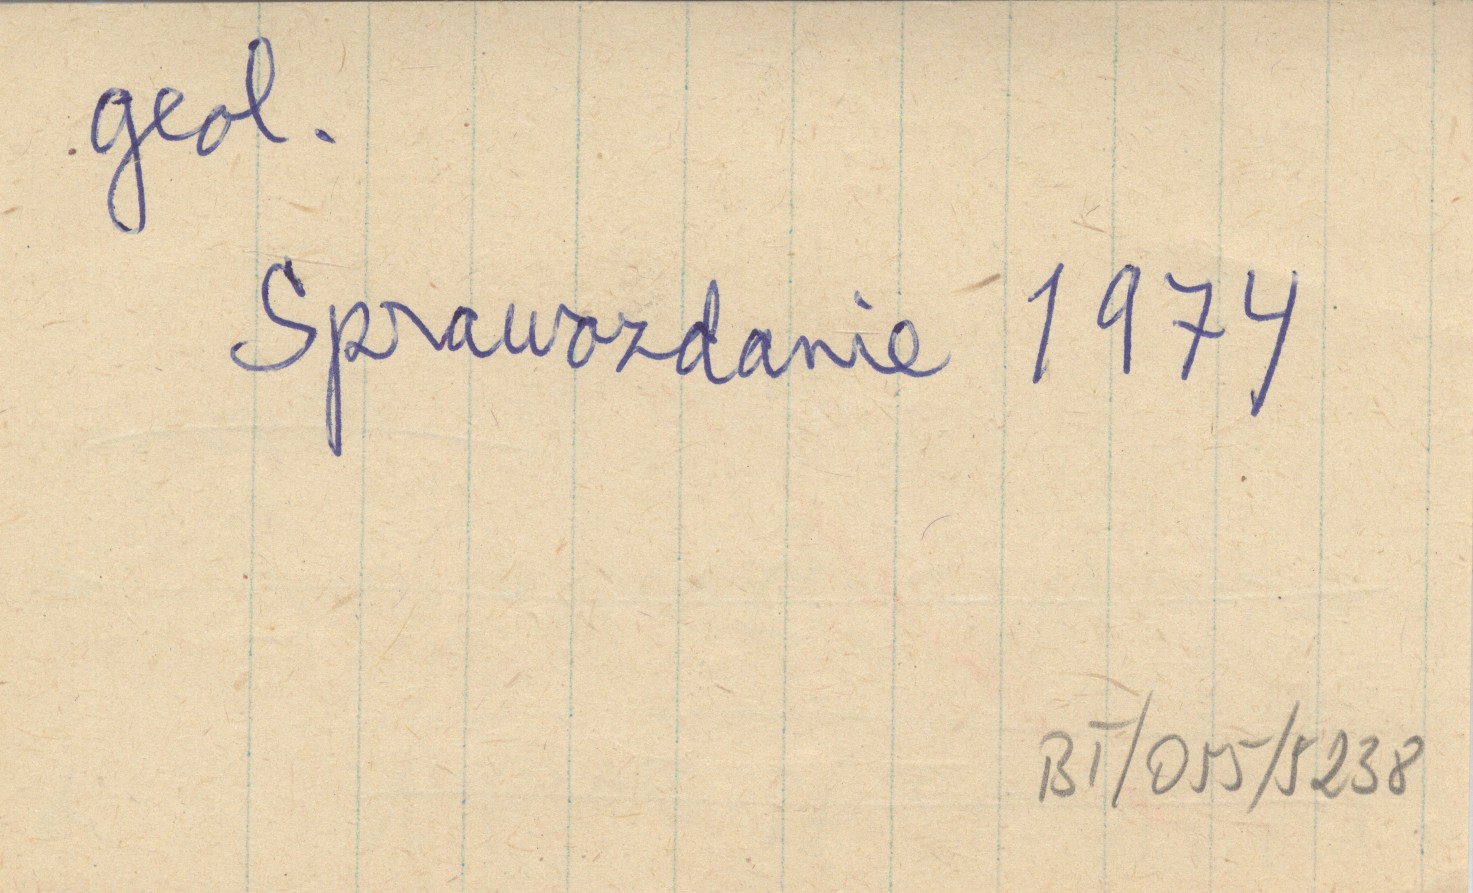 geol.
Sprawozdanie 1974
BT/055/5238